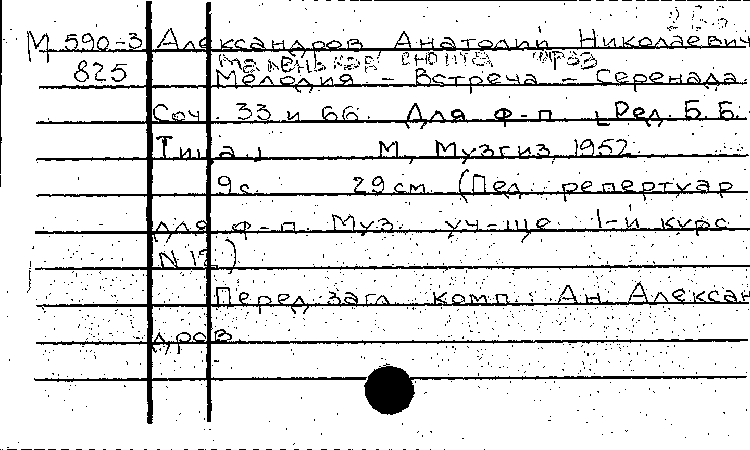 266
М 590-3 Александров Анатолий Николаевич
Маленькая сюита Фраз
825 Мелодия – Встреча – Серенада.
Соч. 33 и 66. Для ф-п. [Ред. Б. Б.
Тица.] М., Музгиз, 1952.
9 с. 29 см. (Пед. репертуар
для ф-п. Муз. уч-ще 1-й курс
N 12)
Перед загл. комп.: Ан. Алексан
дров